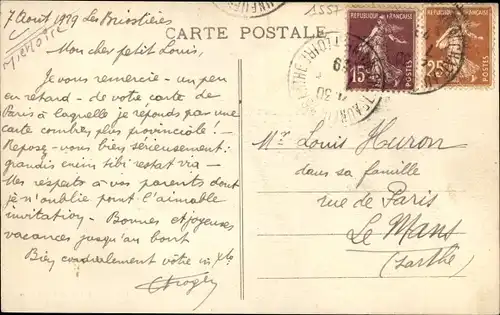 7 Août 1929 Les Brissetières
1557
CARTE POSTALE
REPUBLIQUE FRANÇAISE
15c
POSTES
REPUBLIQUE FRANÇAISE
25c
POSTES
Mon cher petit Louis,
Je vous remercie - un peu
en retard - de votre carte de
Paris à laquelle je réponds par une
carte combien plus provinciale! -
Repose-vous bien sérieusement:
grandis enim tibi restat via -
Mes respects à vos parents dont
je n'oublie point l'aimable
invitation - Bonnes et joyeuses
vacances jusqu'au bout
Bien cordialement votre in Xto
Mr Louis Huron
dans sa famille
rue de Paris
Le Mans
(Sarthe)